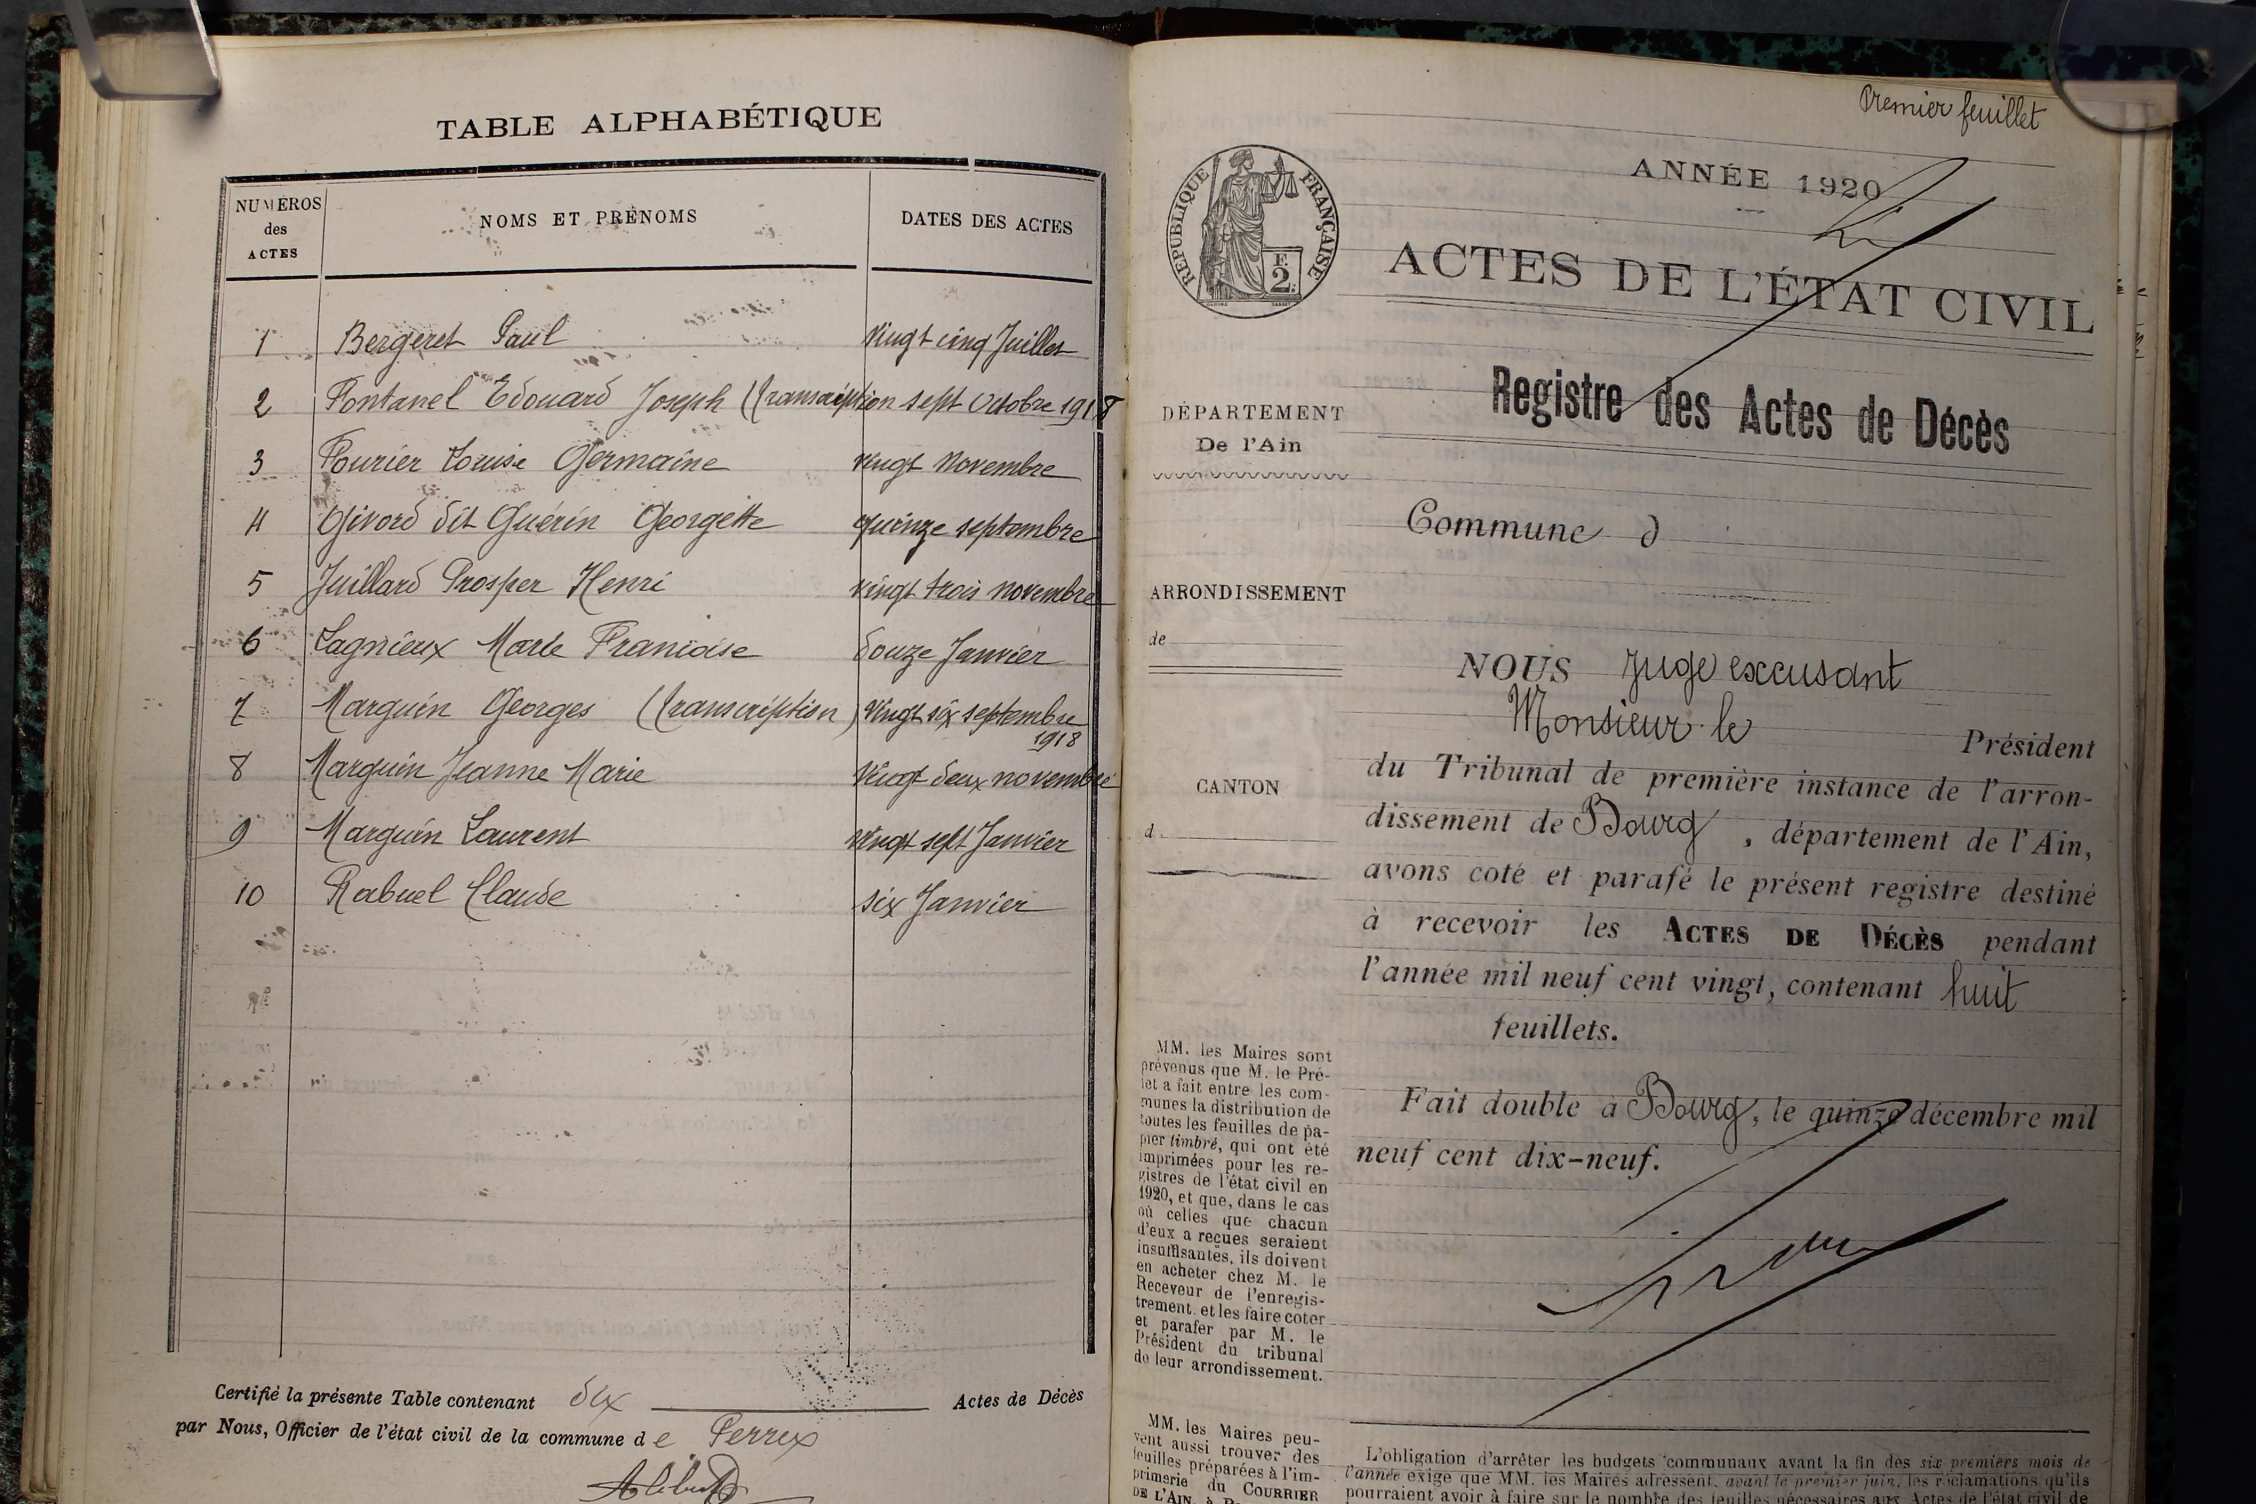 TABLE ALPHABÉTIQUE
NUMÉROS des ACTES
NOMS ET PRÉNOMS
DATES DES ACTES
1 Bergeret Paul Vingt cinq Juillet
2 Fontanel Edouard Joseph (Transcription sept Octobre 1918
3 Fourier Louise Germaine vingt Novembre
4 Givord dit Guérin Georgette quinze septembre
5 Juillard Prosper Henri vingt trois novembre
6 Lagnieux Marie Francoise douze Janvier
7 Marguin Georges (Transcription) Vingt six septembre
1918
8 Marguin Jeanne Marie Vingt deux novembre
9 Marguin Laurent Vingt sept Janvier
10 Rabuel Claude six Janvier
Certifié la présente Table contenant dix Actes de Décès
par Nous, Officier de l'état civil de la commune de Perrex
Premier feuillet
ANNÉE 1920
RÉPUBLIQUE FRANÇAISE
F.
2
ACTES DE L'ÉTAT CIVIL
Registre des Actes de Décès
DÉPARTEMENT
De l'Ain
Commune d
ARRONDISSEMENT
de
CANTON
d
NOUS Juge excusant
Monsieur le
Président
du Tribunal de première instance de l'arron-
dissement de Bourg, département de l'Ain,
avons coté et parafé le présent registre destiné
à recevoir les ACTES DE DÉCÈS pendant
l'année mil neuf cent vingt, contenant huit
feuillets.
Fait double à Bourg, le quinze décembre mil
neuf cent dix-neuf.
MM. les Maires sont
prévenus que M. le Pré-
fet a fait entre les com-
munes la distribution de
toutes les feuilles de pa-
pier timbré, qui ont été
imprimées pour les re-
gistres de l'état civil en
1920, et que, dans le cas
où celles que chacun
d'eux a reçues seraient
insuffisantes, ils doivent
en acheter chez M. le
Receveur de l'enregis-
trement et les faire coter
et parafer par M. le
Président du tribunal
de leur arrondissement.
MM. les Maires peu-
vent aussi trouver des
feuilles préparées à l'im-
primerie du COURRIER
DE L'AIN, à
L'obligation d'arrêter les budgets communaux avant la fin des six premiers mois de
l'année exige que MM. les Maires adressent, avant le premier juin, les réclamations qu'ils
pourraient avoir à faire sur le nombre des feuilles nécessaires aux Actes de l'état civil de